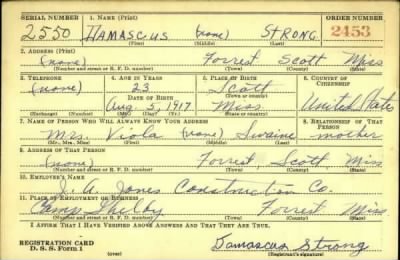 SERIAL NUMBER 1. NAME (Print) ORDER NUMBER
2550 DAMASCUS (none) STRONG 2453
(First) (Middle) (Last)
2. ADDRESS (Print)
(none) Forrest Scott Miss
(Number and street or R. F. D. number) (Town) (County) (State)
3. TELEPHONE 4. AGE IN YEARS 5. PLACE OF BIRTH 6. COUNTRY OF CITIZENSHIP
(none) 23 Scott
DATE OF BIRTH (Town or county)
Aug. 5, 1917 Miss. United States
(Exchange) (Number) (Mo.) (Day) (Yr.) (State or country)
7. NAME OF PERSON WHO WILL ALWAYS KNOW YOUR ADDRESS 8. RELATIONSHIP OF THAT PERSON
Mrs. Viola (none) Swaine mother
(Mr., Mrs., Miss) (First) (Middle) (Last)
9. ADDRESS OF THAT PERSON
(none) Forrest, Scott, Miss
(Number and street or R. F. D. number) (Town) (County) (State)
10. EMPLOYER'S NAME
J. A. Jones Construction Co.
11. PLACE OF EMPLOYMENT OR BUSINESS
Camp Shelby Forrest Miss
(Number and street or R. F. D. number) (Town) (County) (State)
I AFFIRM THAT I HAVE VERIFIED ABOVE ANSWERS AND THAT THEY ARE TRUE.
REGISTRATION CARD
D. S. S. Form 1 (over) Damascus Strong
(Registrant's signature)